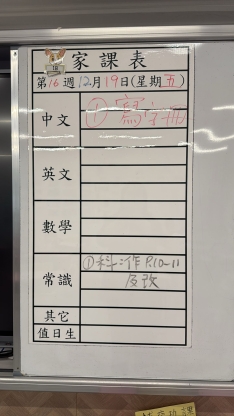 家課表
第16週12月19日(星期五)
中文
①寫字冊
英文
數學
常識
①科:作P.10-11
及改
其它
值日生